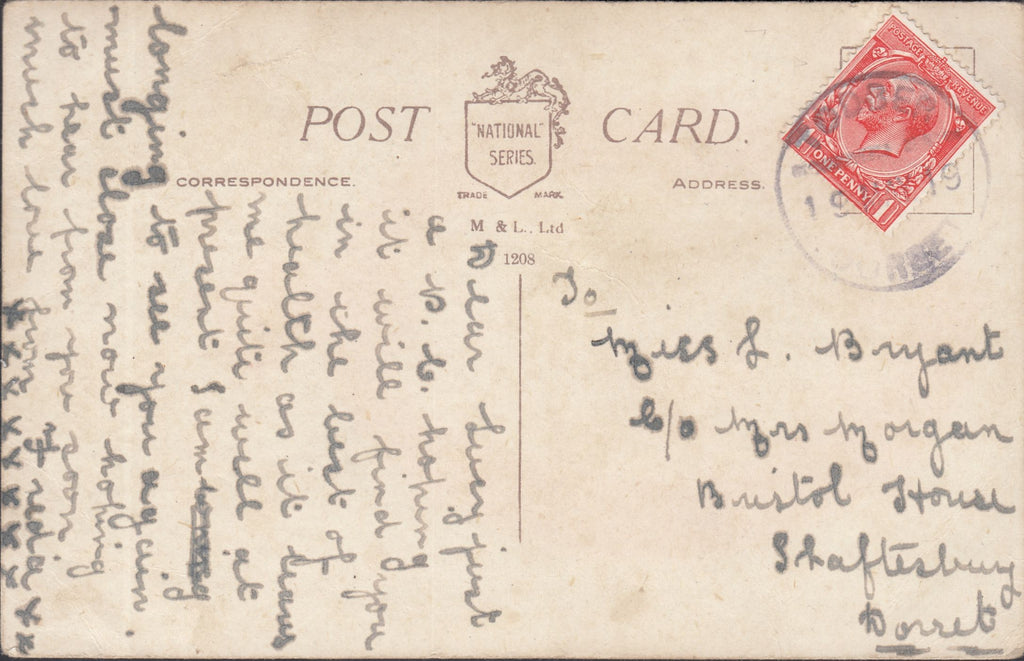 POST CARD.
"NATIONAL"
SERIES.
TRADE MARK.
CORRESPONDENCE.
ADDRESS.
M & L., Ltd
1208
POSTAGE REVENUE
ONE PENNY
1
19
Dear Lucy just
a P. C. hoping
it will find you
in the best of
health as it leaves
me quite well at
present I am
longing to see you again
must close now hoping
to hear from you soon
much love from Freda
x x x x x x x x x x
To
Miss L. Bryant
C/o Mrs Morgan
Bristol House
Shaftesbury
Dorset